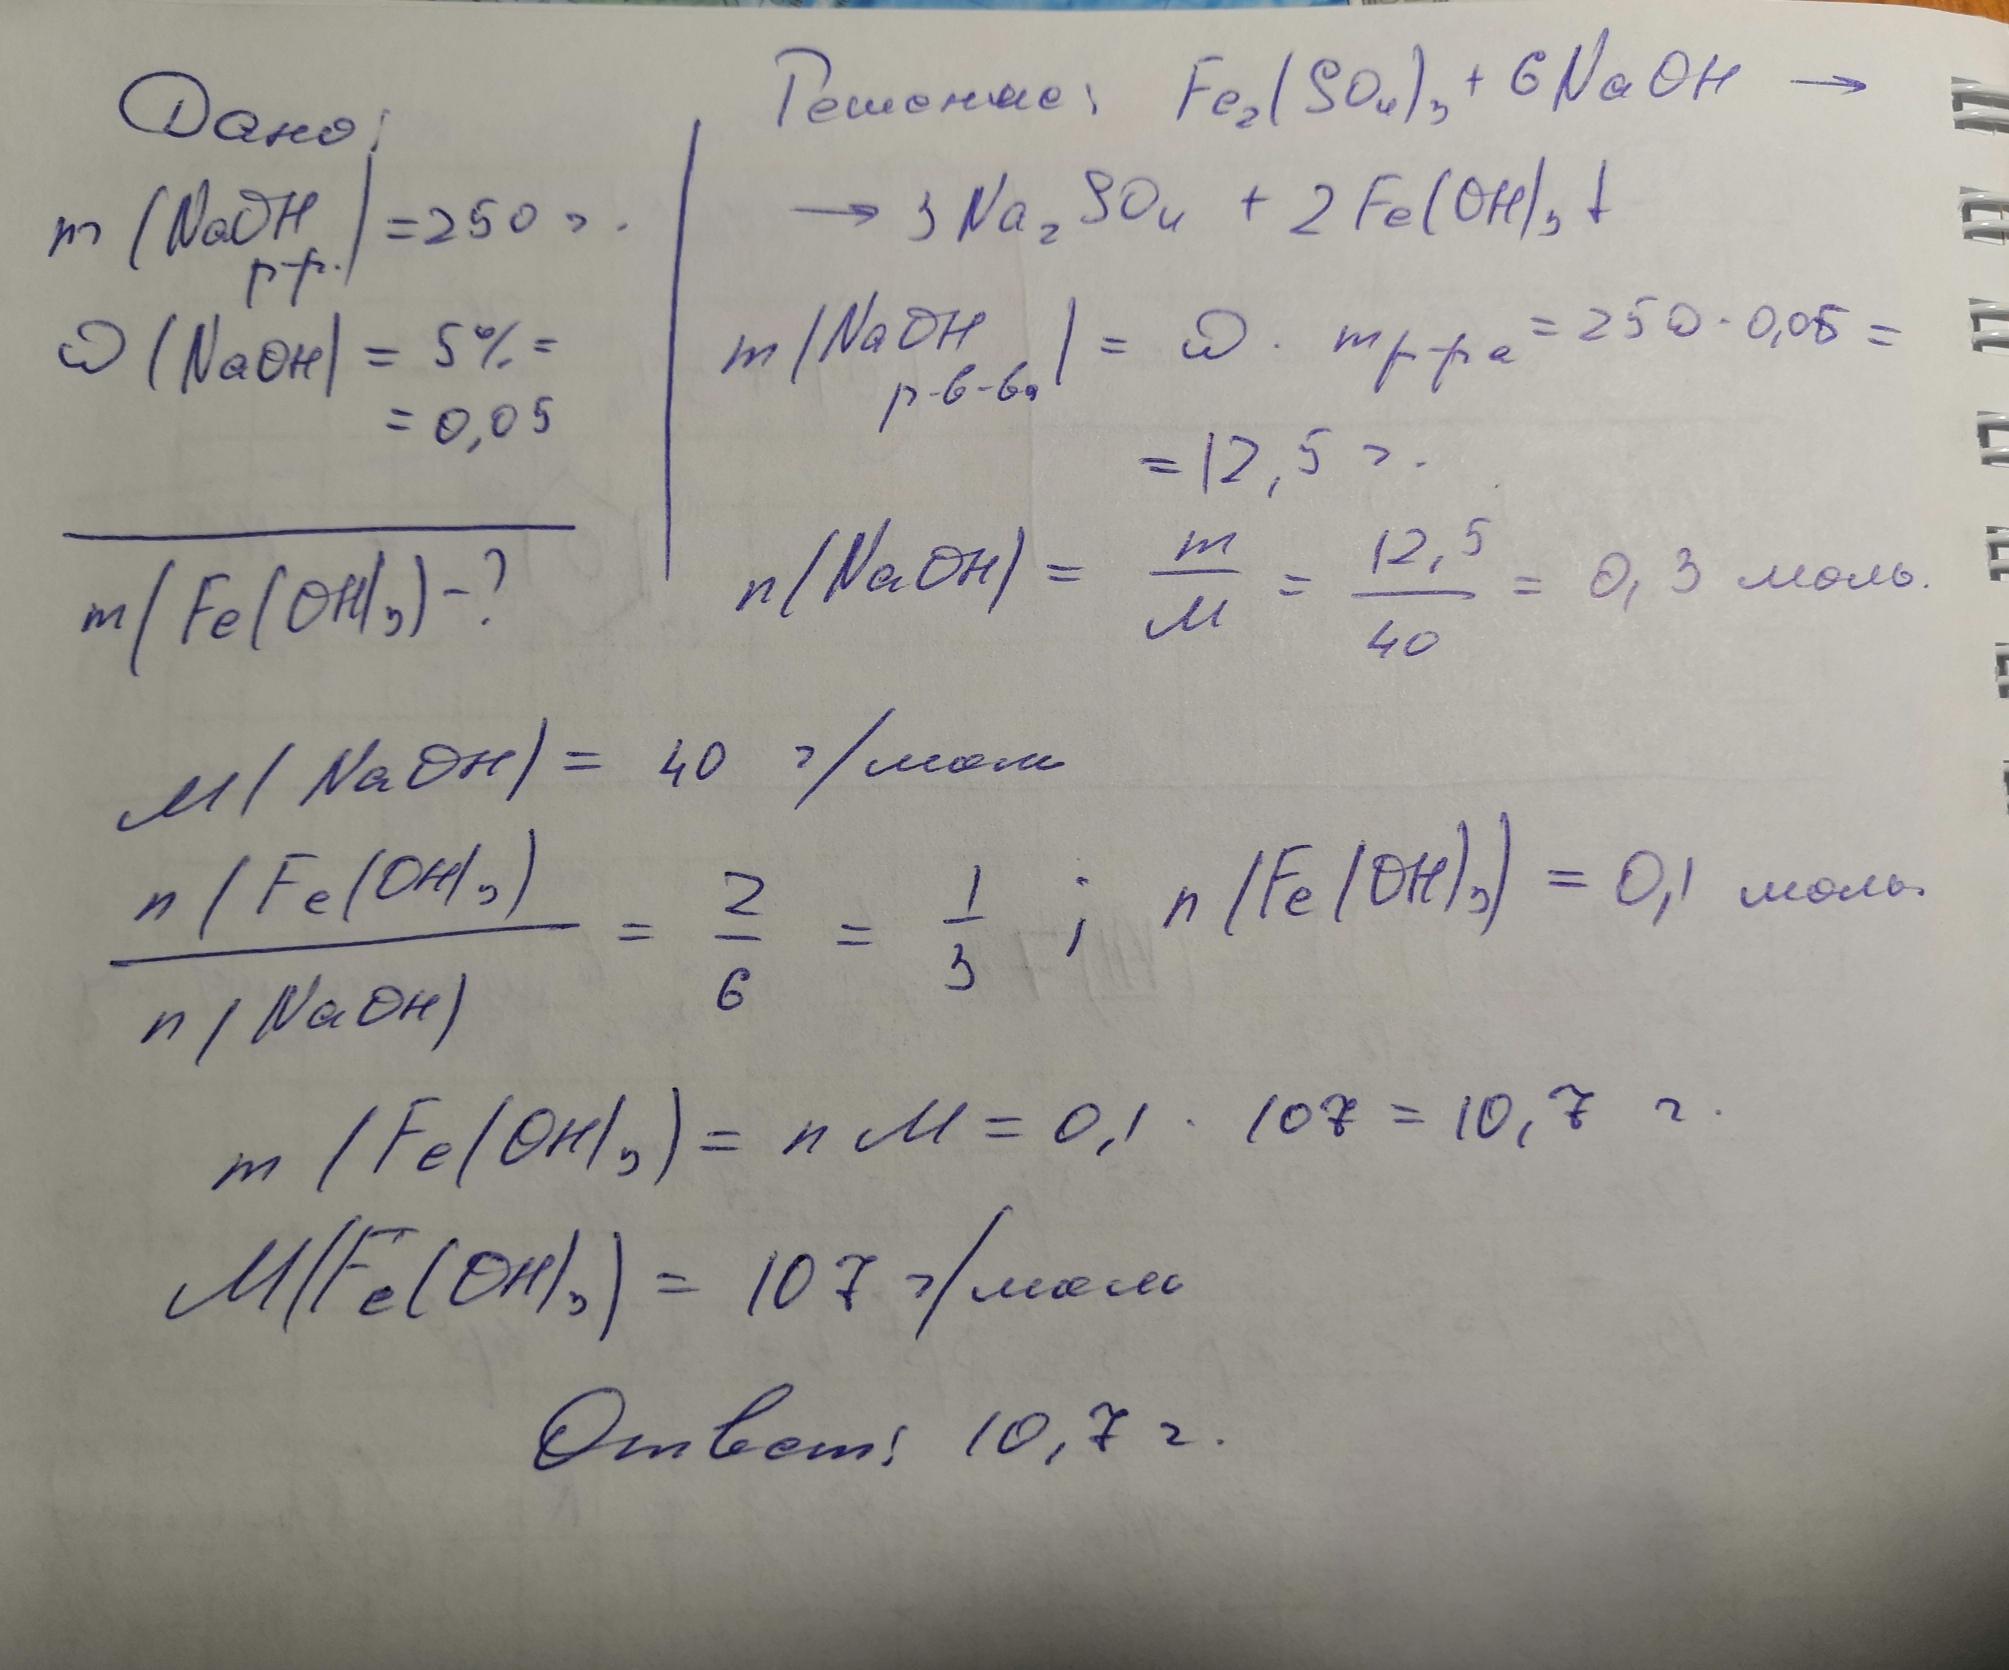 Дано:
m(NaOH р-р.) = 250 г.
ω(NaOH) = 5% =
= 0,05
m(Fe(OH)₃) - ?
Решение: Fe₂(SO₄)₃ + 6NaOH →
→ 3Na₂SO₄ + 2Fe(OH)₃↓
m(NaOH р-в-ва) = ω · m р-ра = 250 · 0,05 =
= 12,5 г.
n(NaOH) = m/M = 12,5/40 = 0,3 моль.
M(NaOH) = 40 г/моль
n(Fe(OH)₃)/n(NaOH) = 2/6 = 1/3 ; n(Fe(OH)₃) = 0,1 моль.
m(Fe(OH)₃) = n M = 0,1 · 107 = 10,7 г.
M(Fe(OH)₃) = 107 г/моль
Ответ: 10,7 г.